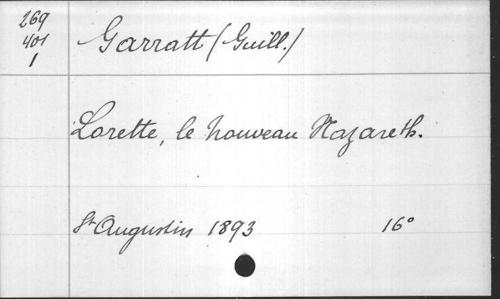 269
401
1
Garratt (Guill.)
Lorette, le nouveau Nazareth.
St Augustin 1893 16°